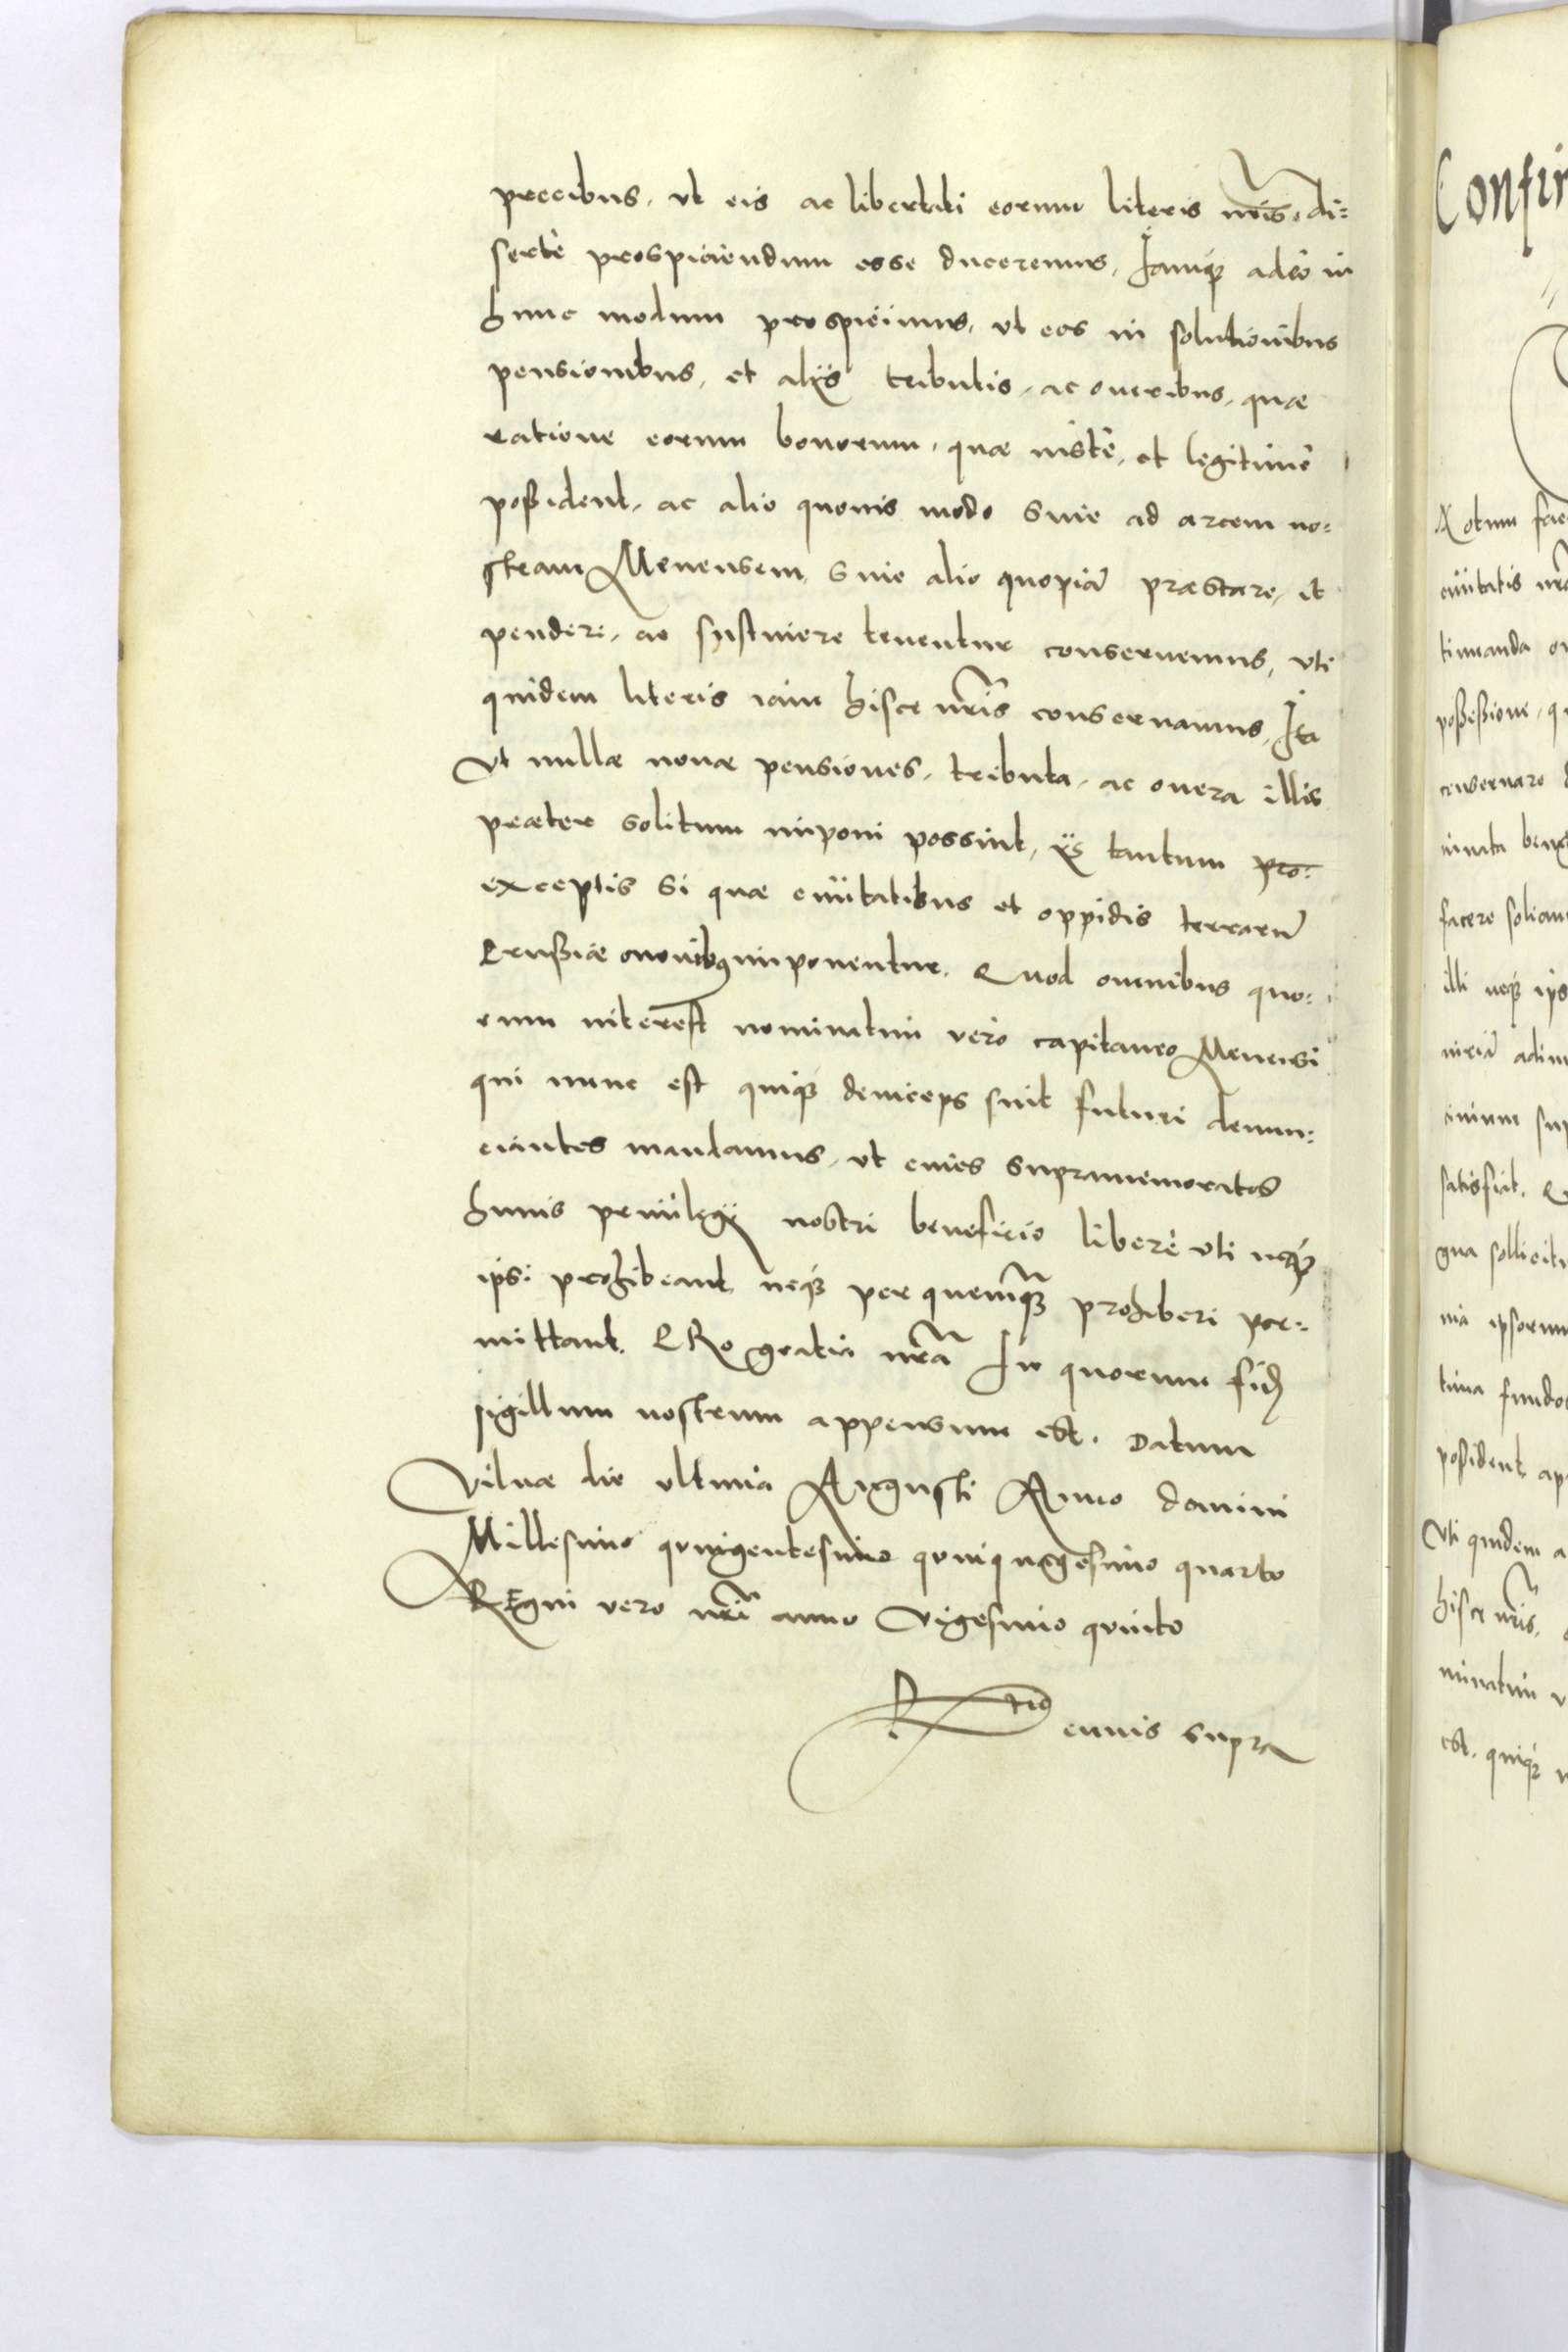 precibus, ut eis ac libertati eorum literis nris di=
sertè prospiciendum esse duceremus, Iamq; adeò in
hunc modum prospicimus, ut eos in solutionibus
pensionibus, et alÿs tributis, ac oneribus, quæ
ratione eorum bonorum, quæ iustè, et legitimè
poßident, ac alio quouis modo siue ad arcem no=
stram Meuensem, siue alio quopiã præstare, et
pendere, ac sustinere tenentur conseruemus, uti
quidem literis iam hisce nris conseruamus, Ita
Vt nullæ nouæ pensiones, tributa, ac onera illis
præter solitum imponi possint, ÿs tantum pro=
exceptis si quæ ciuitatibus et oppidis terrarũ
Prußiæ omnibq imponentur. Quod omnibus quo=
rum interest nominatim vero capitaneo Meuensi
qui nunc est quiq; deinceps sint futuri denun=
ciantes mandamus, ut ciues supramemoratos
huius priuilegÿ nostri beneficio liberè uti neq;
ipsi prohibeant neq; per quemq; prohiberi per=
mittant. PRo gratia nra In quorum fidẽ
sigillum nostrum appensum est. Datum
Vilnæ die ultima Augusti Anno domini
Millesimo quingentesimo quinquagesimo quarto
REgni vero nri anno Vigesimo quinto
Rtio cuius supra
Confir
Notum fac
ciuitatis nr
timanda
poßeßione, q
cõseruare
innata beni
facere solíam
illi neq; ips
iniriã adim
ciuium sup
satisfiat. Q
gna sollicitu
nia ipsorum
tima fundo
poßident, ap
Vti quidem a
hisce nris,
minatim v
est, quiq;